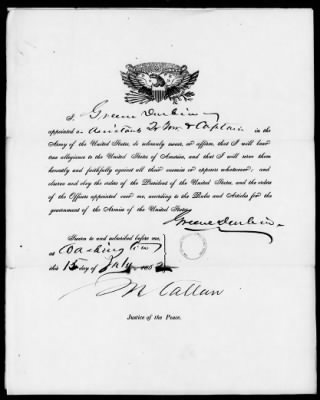 I, Greene Durbin
appointed a Assistant Q Mr & Captain in the
Army of the United States, do solemnly swear, or affirm, that I will bear
true allegiance to the United States of America, and that I will serve them
honestly and faithfully against all their enemies or opposers whatsoever; and
observe and obey the orders of the President of the United States, and the orders
of the Officers appointed over me, according to the Rules and Articles for the
government of the Armies of the United States.
Greene Durbin
Sworn to and subscribed before me,
at Washington City
this 15 day of July 186
M Callan
Justice of the Peace.